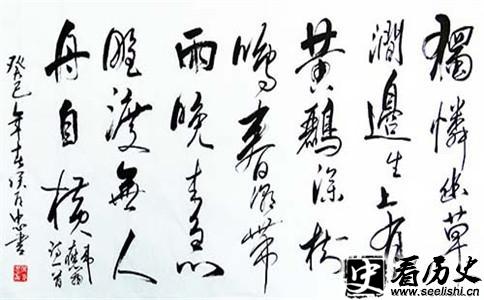 獨憐幽草
澗邊生上有
黃鸝深樹
鳴春潮帶
雨晚来急
野渡無人
舟自横
韋
應物
詩一首
癸巳年春忠書
史看历史
www.seelishi.cn